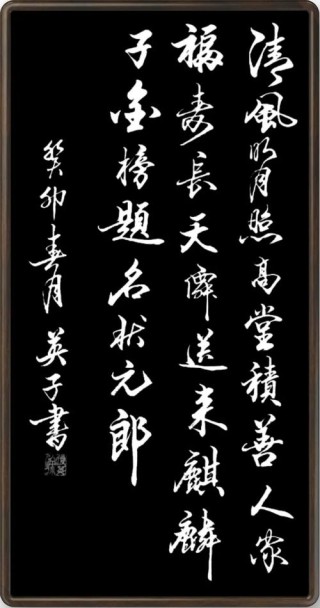 清風明月照高堂積善人家
福壽長天僊送来麒麟
子金榜題名状元郎
癸卯春月英子書